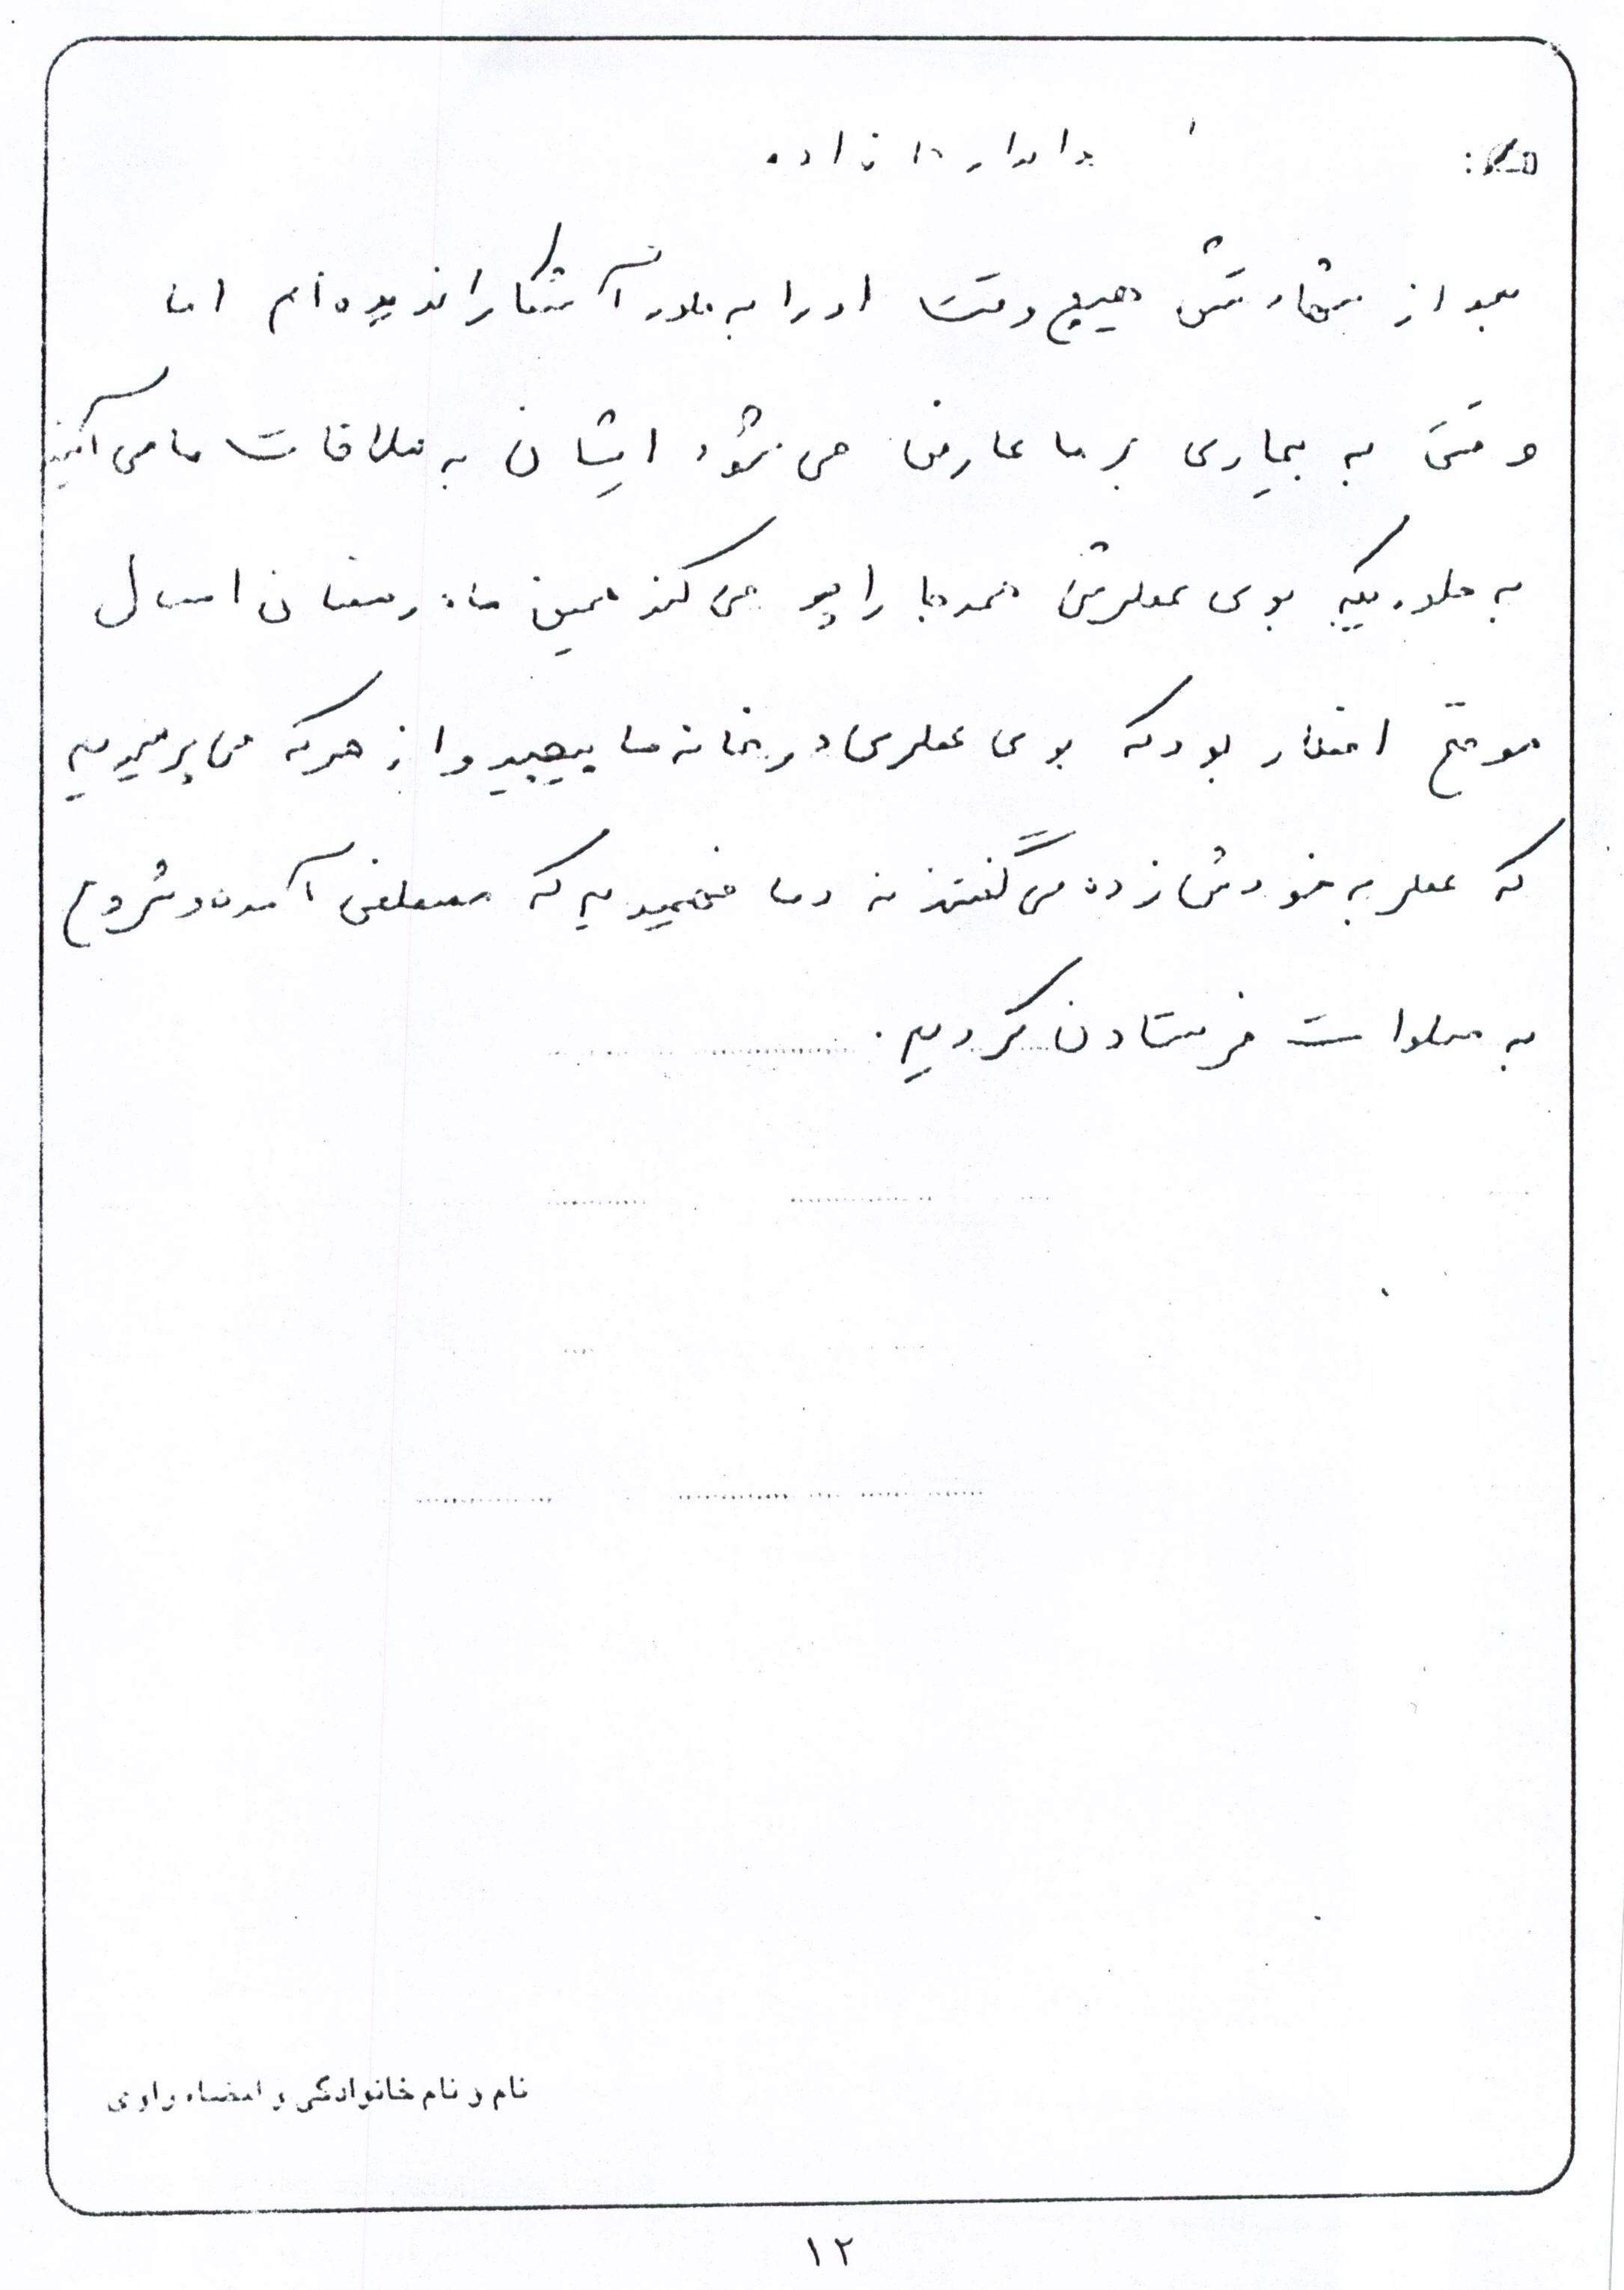 بعد از شهادتش هیچ وقت او را به طور آشکارا ندیده ام اما
وقتی به بیماری بر ما عارض می شود ایشان به ملاقات ما می آیند
به طوریکه بوی عطرش همه جا را پر می کند همین ماه رمضان امسال
موقع افطار بود که بوی عطری در خانه ما پیچید و از هر که می پرسیدیم
که عطر به خودش زده می گفتند نه و ما فهمیدیم که مصطفی آمده و شروع
به صلوات فرستادن کردیم.
نام و نام خانوادگی و امضاء راوی
۱۲